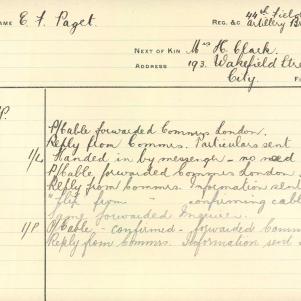 NAME E. F. Paget. REG. &c 44th Field
Artillery Br
NEXT OF KIN Mrs H. Clark.
ADDRESS 193. Wakefield Stre
City.
P/Cable forwarded Commrs London.
Reply from Commrs. Particulars sent
Handed in by messenger - no need
P/Cable forwarded Commrs London
Reply from Commrs. Information sent
" slip from " confirming cabl
forwarded Enquirer.
1/P P/Cable - confirmed - forwarded Comm
Reply from Commrs. Information sent